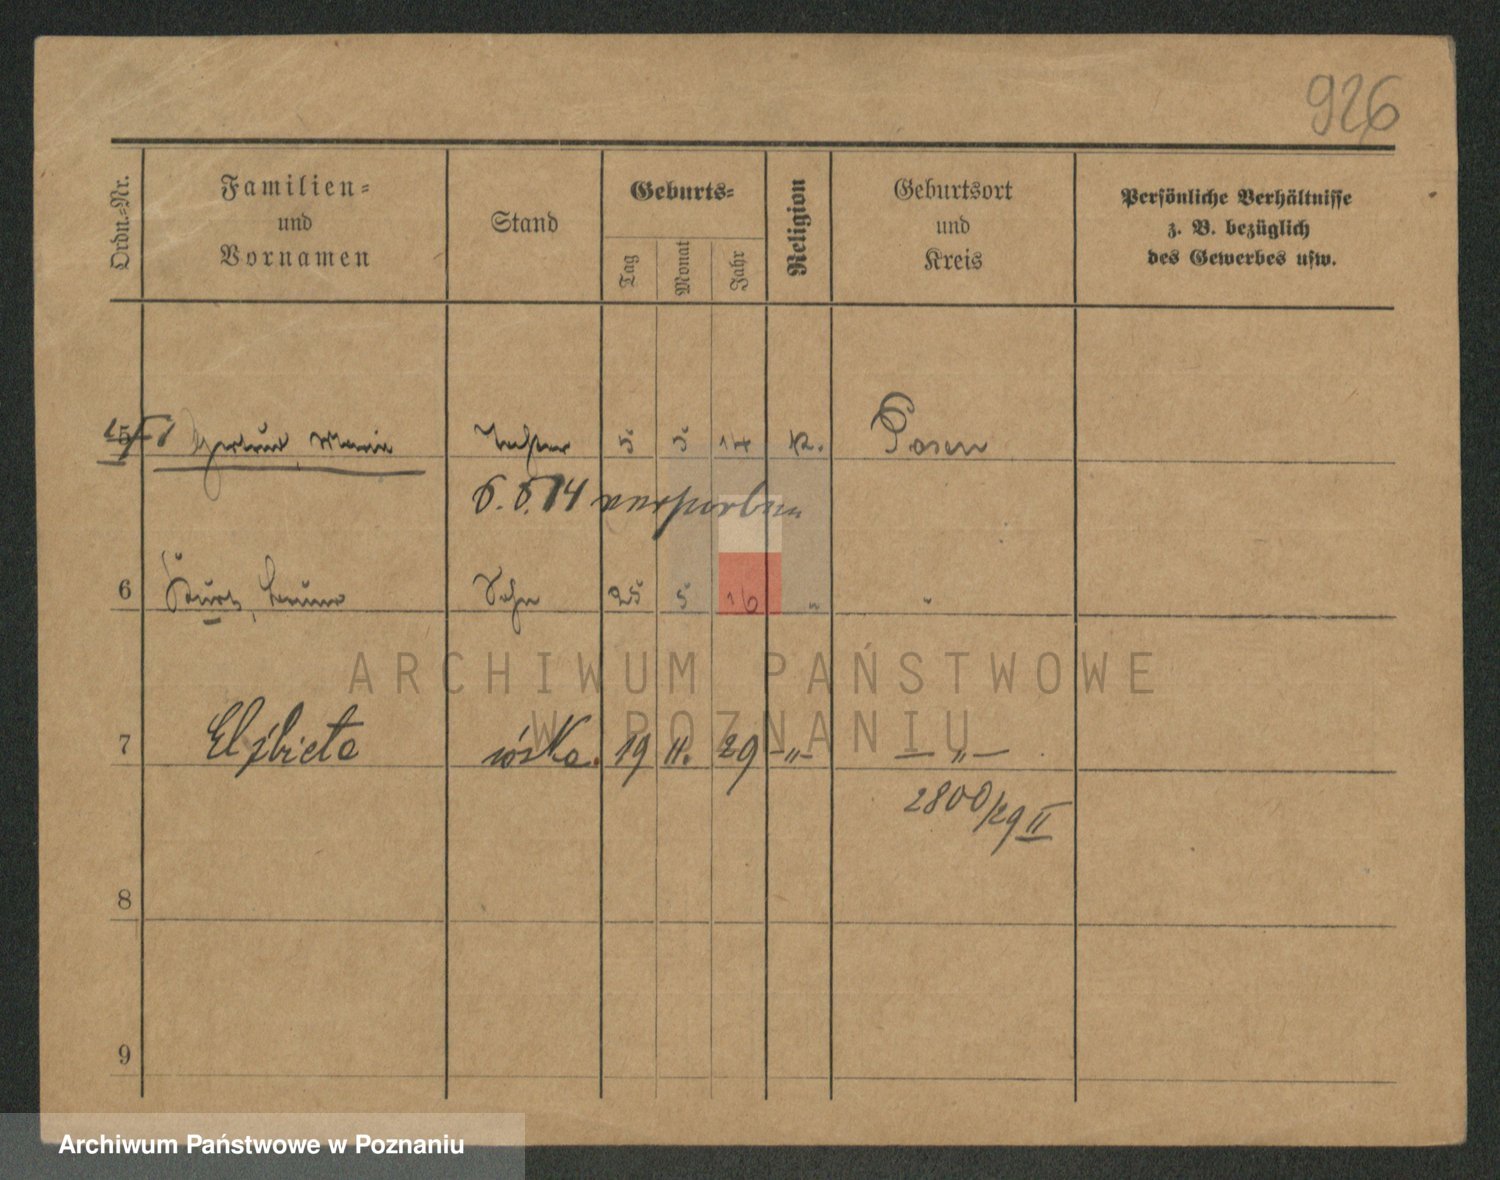 926
Ordn.-Nr.
Familien-
und
Vornamen
Stand
Geburts-
Tag
Monat
Jahr
Religion
Geburtsort
und
Kreis
Persönliche Verhältnisse
z. B. bezüglich
des Gewerbes usw.
5 Gertrud, Maria Tochter 5. 5 14 K. Posen
5. 5. 14 verstorben
6 Kurt, Bruno Sohn 25 5 16 " "
ARCHIWUM PAŃSTWOWE
W POZNANIU
7 Elżbieta córka. 19 II. 29 -"- -"-
2800/29 II
8
9
Archiwum Państwowe w Poznaniu